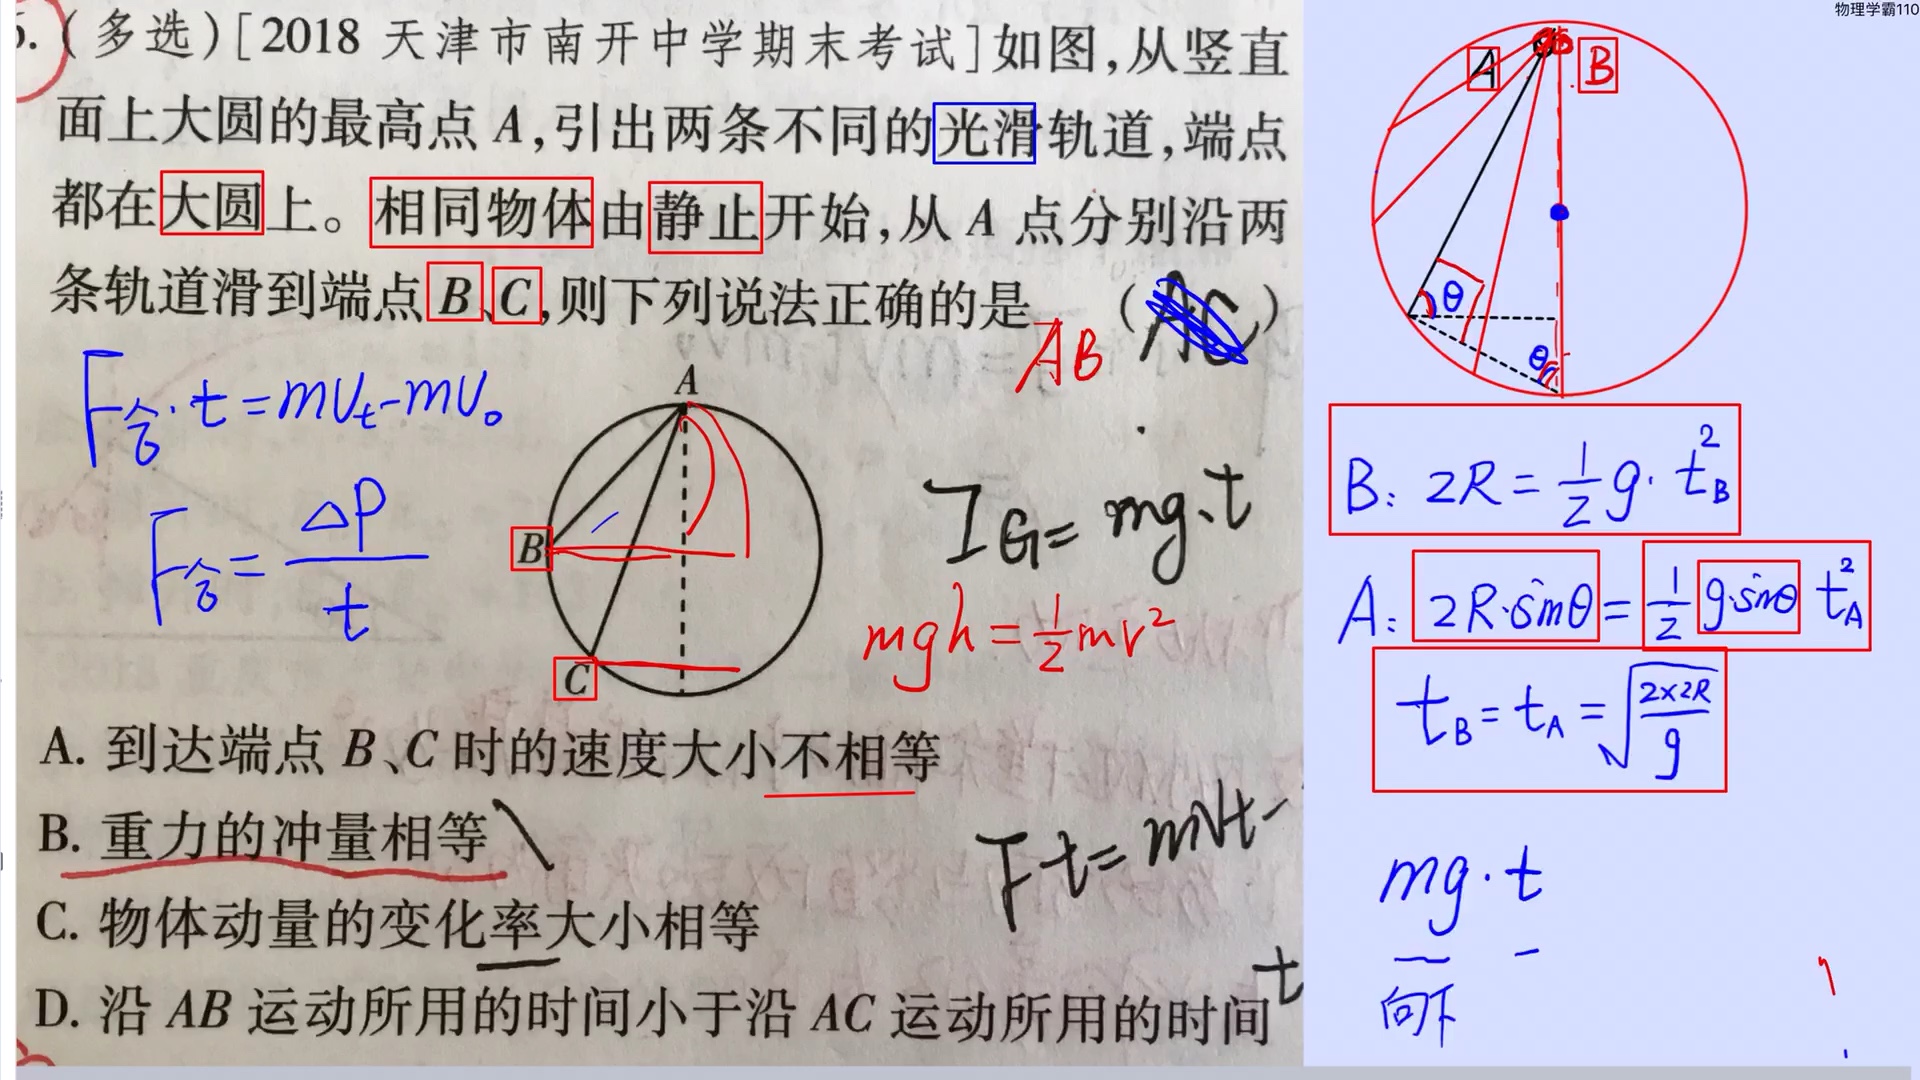 物理学霸110
5. (多选)[2018 天津市南开中学期末考试]如图,从竖直
面上大圆的最高点 A,引出两条不同的光滑轨道,端点
都在大圆上。相同物体由静止开始,从 A 点分别沿两
条轨道滑到端点 B、C,则下列说法正确的是 (AC)
AB
F合·t=mVt-mV₀
F合=ΔP/t
A
B
C
I_G=mg·t
mgh=½mv²
A. 到达端点 B、C 时的速度大小不相等
B. 重力的冲量相等
C. 物体动量的变化率大小相等
D. 沿 AB 运动所用的时间小于沿 AC 运动所用的时间
Ft=mVt-
t
A
B
θ
θ
B: 2R=½g·t_B²
A: 2R·sinθ=½g·sinθ t_A²
t_B=t_A=√(2×2R/g)
mg·t
向下